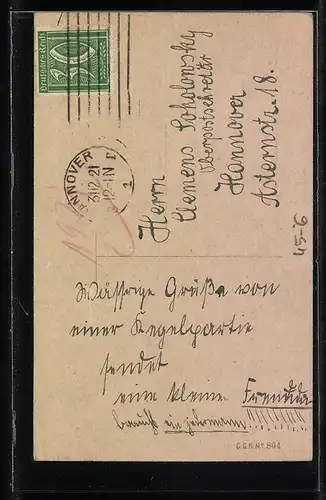 Deutsches Reich
30
HANNOVER
31.12.21
12-1N
1
Herrn
Clemens Sokolowsky
Oberpostsekretär
Hannover
Asternstr. 18.
45-6
Wässrige Grüße von
einer Kegelpartie
sendet
eine kleine
braucht ein jedermann!!!!!!!
G.G.K. No. 804